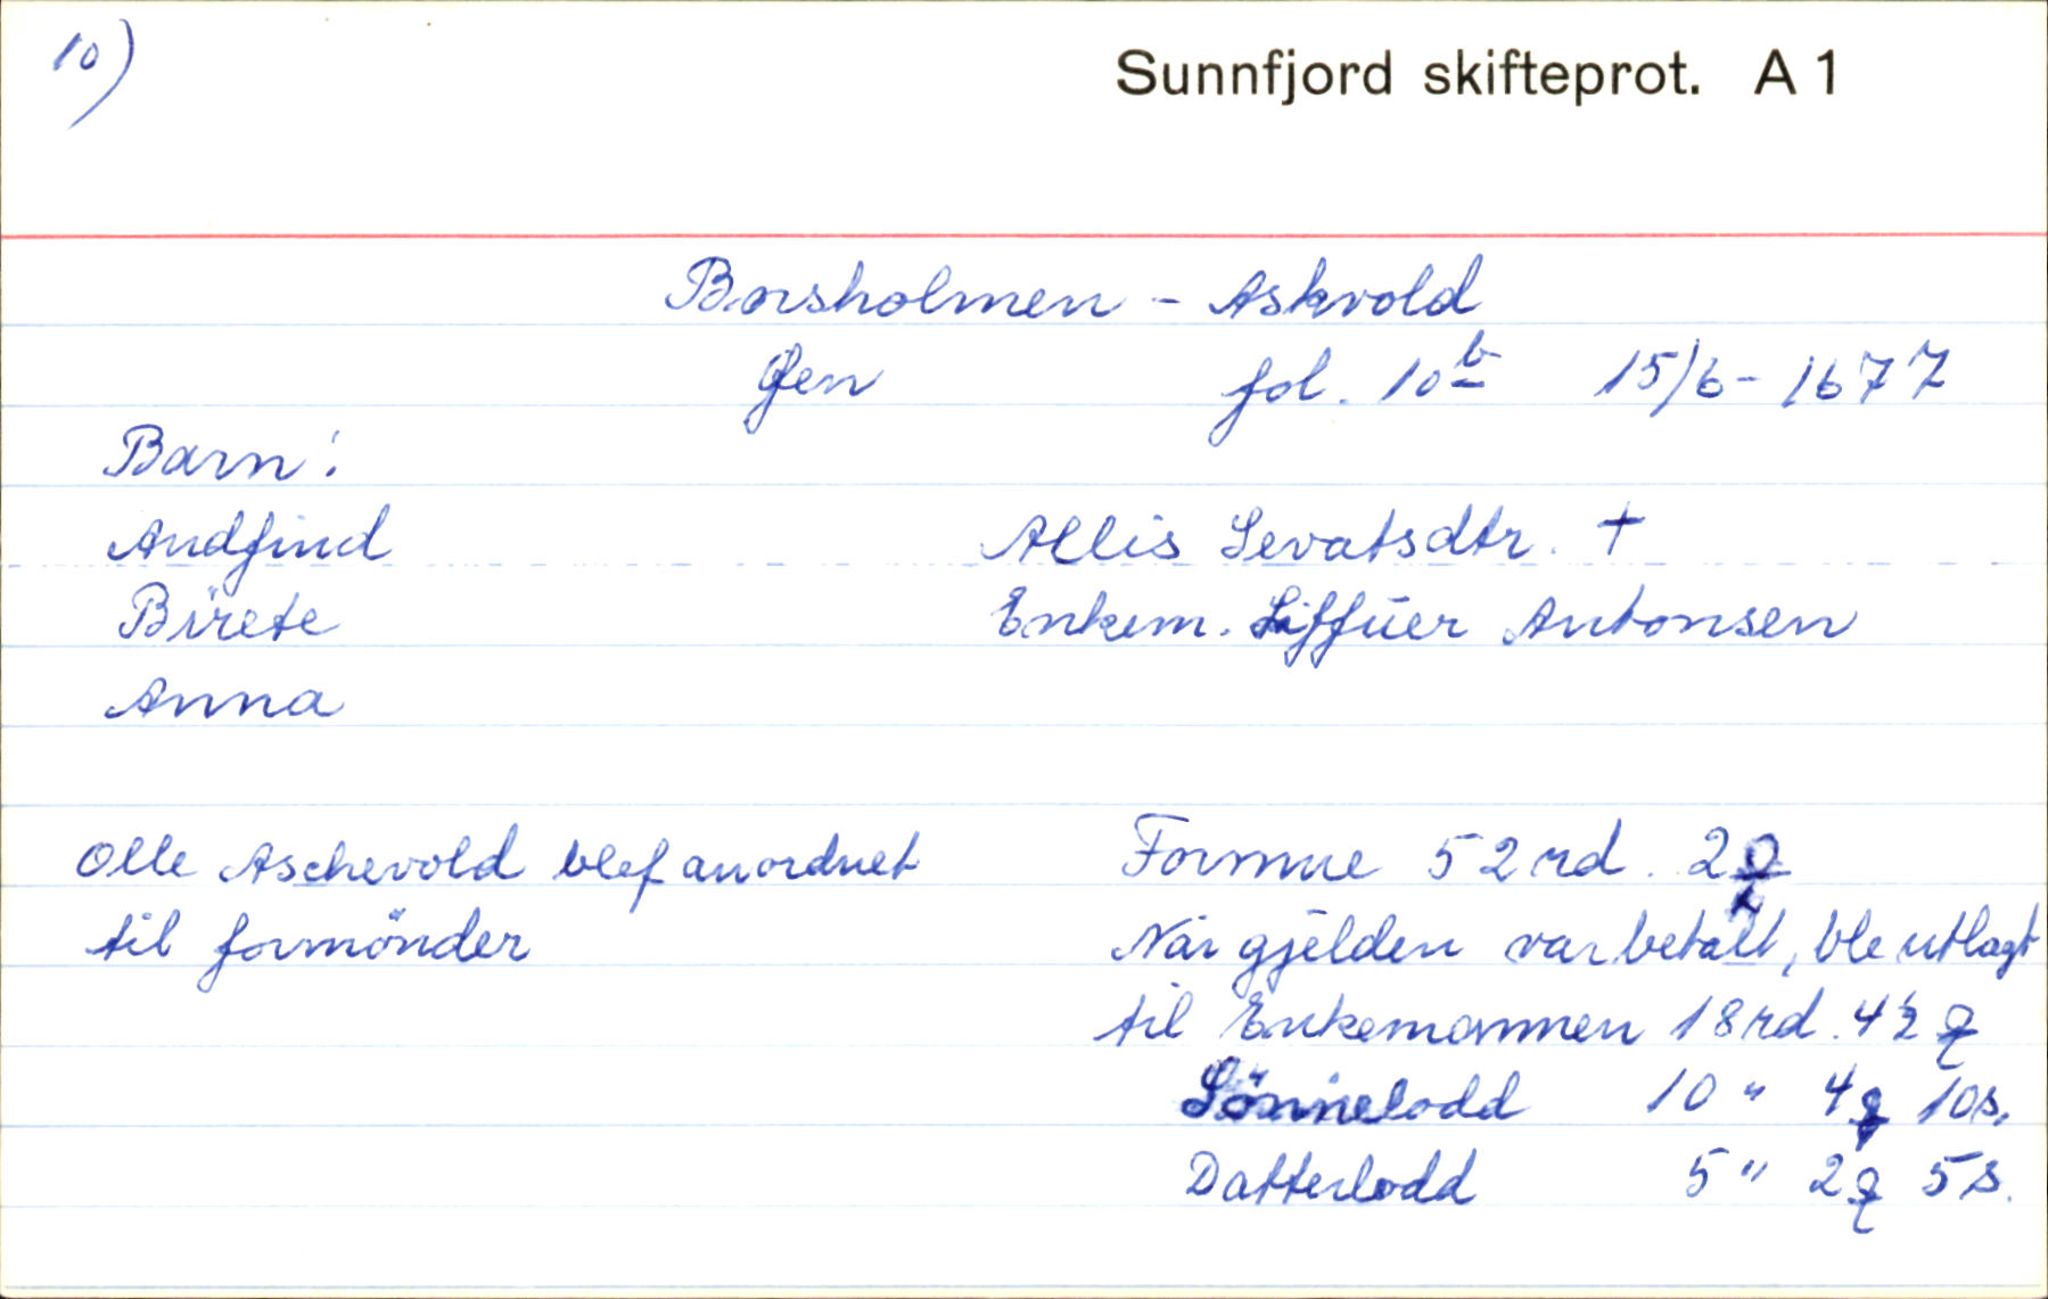 10)
Sunnfjord skifteprot. A 1
Borsholmen - Askvold
Øen fol. 10 b 15/6 - 1677
Barn:
Andfind Allis Sevatsdtr. †
Birete Enkem. Siffuer Antonsen
Anna
Olle Aschevold blef anordnet
til formönder
Formue 52 rd. 2
Når gjelden var betalt, ble utlagt
til Enkemannen 18 rd. 4½
Sönnelodd 10 " 4 10 s.
Datterlodd 5 " 2 5 s.